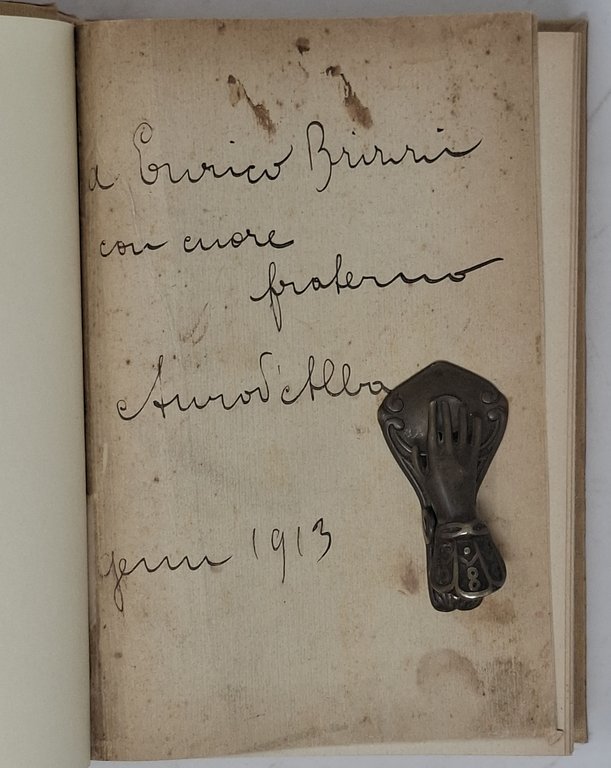 a Enrico Brizzi
con cuore
fraterno
Auro d'Alba
genn 1913